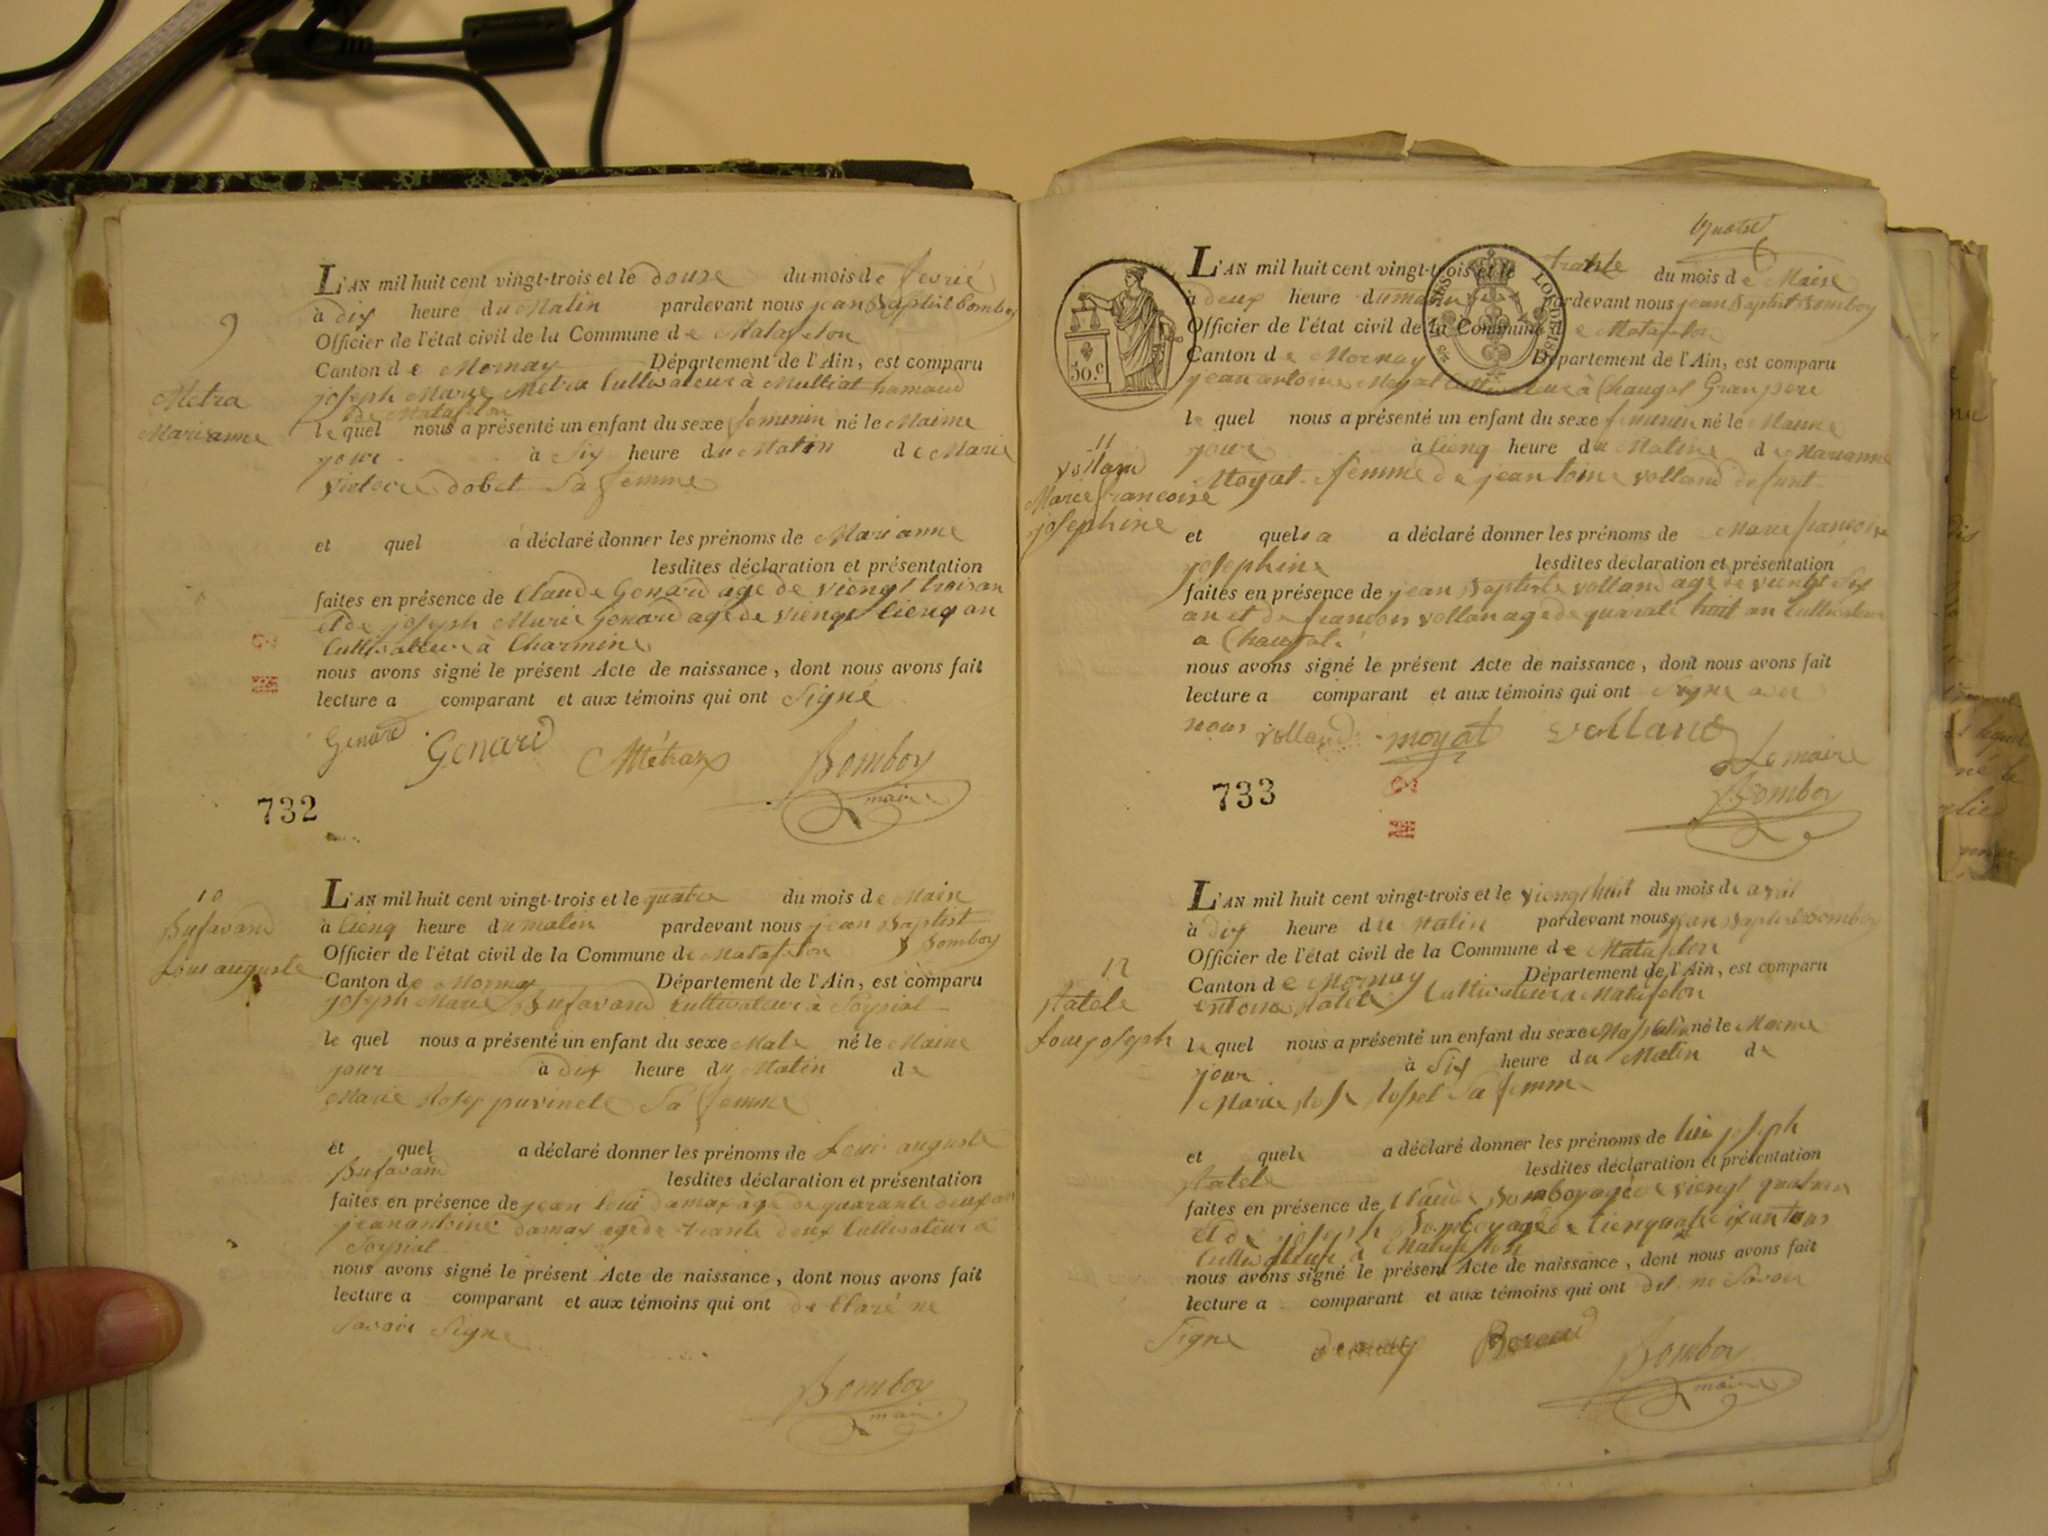 9
Metra
Marianne
L'AN mil huit cent vingt-trois et le douse du mois de fevrié
à dix heure du Matin pardevant nous jean Baptist bomboy
Officier de l'état civil de la Commune de Matafelon
Canton de Mornay Département de l'Ain, est comparu
joseph Marie Metra Cultivateur à Mulliat hamaud
de Matafelon
le quel nous a présenté un enfant du sexe femenin né le Maime
jour à Six heure du Matin de Marie
dobet Sa femme
et quel a déclaré donner les prénoms de Marianne
lesdites déclaration et présentation
faites en présence de Claude Genard age de viengt troisan
et de joseph Marie Genard age de viengt cienq an
Cultivateur à Charmine
nous avons signé le présent Acte de naissance, dont nous avons fait
lecture a comparant et aux témoins qui ont Signé
Genard Genard Métrax Bomboy
maire
732
10
Bufavand
Loui auguste
L'AN mil huit cent vingt-trois et le quatre du mois de Maire
à Cienq heure du matin pardevant nous jean Baptist
Officier de l'état civil de la Commune de Matafelon Bomboy
Canton de Mornay Département de l'Ain, est comparu
joseph Marie Bufavand Cultivateur à Soysiat
le quel nous a présenté un enfant du sexe Male né le Maime
jour à dix heure du Matin de
Marie Sa femme
et quel a déclaré donner les prénoms de Loui auguste
Bufavand lesdites déclaration et présentation
faites en présence de jean loui damax àge de quarante deux an
jeanantoine damax age de trante deux Cultivateur à
Soysiat
nous avons signé le présent Acte de naissance, dont nous avons fait
lecture a comparant et aux témoins qui ont de Claré ne
savoir Signe
Bomboy
maire
quatre
50.C
L'AN mil huit cent vingt-trois et le trante du mois de Maire
à deux heure du matin pardevant nous jean Baptist Bomboy
Officier de l'état civil de la Commune de Matafelon
Canton de Mornay Département de l'Ain, est comparu
jean antoine Moyat Cultivateur à Chaugat Granpere
le quel nous a présenté un enfant du sexe femenin né le Maime
jour à Cienq heure du Matin de Marianne
Moyat femme de jeantoine volland defunt
11
volland
Marie francoise
josephine
et quele a a déclaré donner les prénoms de Marie francoise
josephine lesdites déclaration et présentation
faites en présence de jean Baptiste volland age de viengt Six
an et de francois vollan age de quarate huit an Cultivateur
a Chaugat
nous avons signé le présent Acte de naissance, dont nous avons fait
lecture a comparant et aux témoins qui ont Signe avec
nous volland moyat volland
Le maire
Bomboy
733
12
Loui joseph
L'AN mil huit cent vingt-trois et le viengt huit du mois de avril
à dix heure du Matin pardevant nous jean Baptist Bomboy
Officier de l'état civil de la Commune de Matafelon
Canton de Mornay Département de l'Ain, est comparu
Cultivateur a Matafelon
le quel nous a présenté un enfant du sexe né le Maime
jour à Six heure du Matin de
Marie Sa femme
et quele a déclaré donner les prénoms de loui joseph
lesdites déclaration et présentation
faites en présence de Claude Bomboy age de viengt quatre
et de joseph Bomboy age de
Cultivateur à Matafelon
nous avons signé le présent Acte de naissance, dont nous avons fait
lecture a comparant et aux témoins qui ont dit ne Savoir
Signe Bomboy
maire